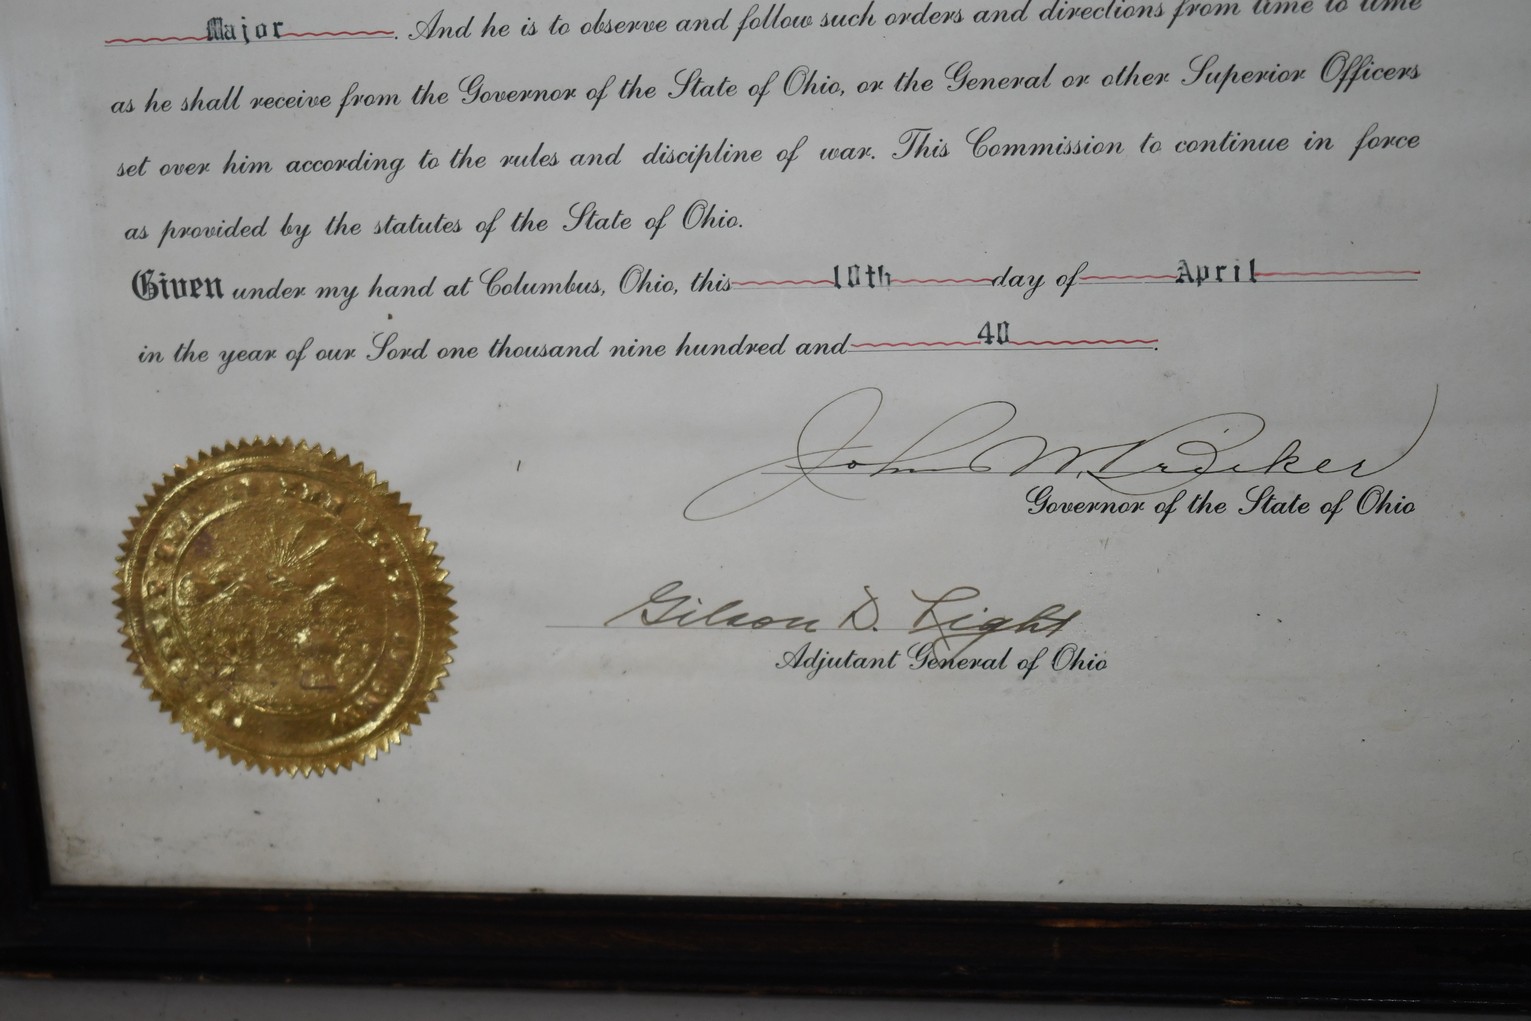 Major. And he is to observe and follow such orders and directions from time to time
as he shall receive from the Governor of the State of Ohio, or the General or other Superior Officers
set over him according to the rules and discipline of war. This Commission to continue in force
as provided by the statutes of the State of Ohio.
Given under my hand at Columbus, Ohio, this 10th day of April
in the year of our Lord one thousand nine hundred and 40.
John W. Bricker
Governor of the State of Ohio
Gilson D. Light
Adjutant General of Ohio